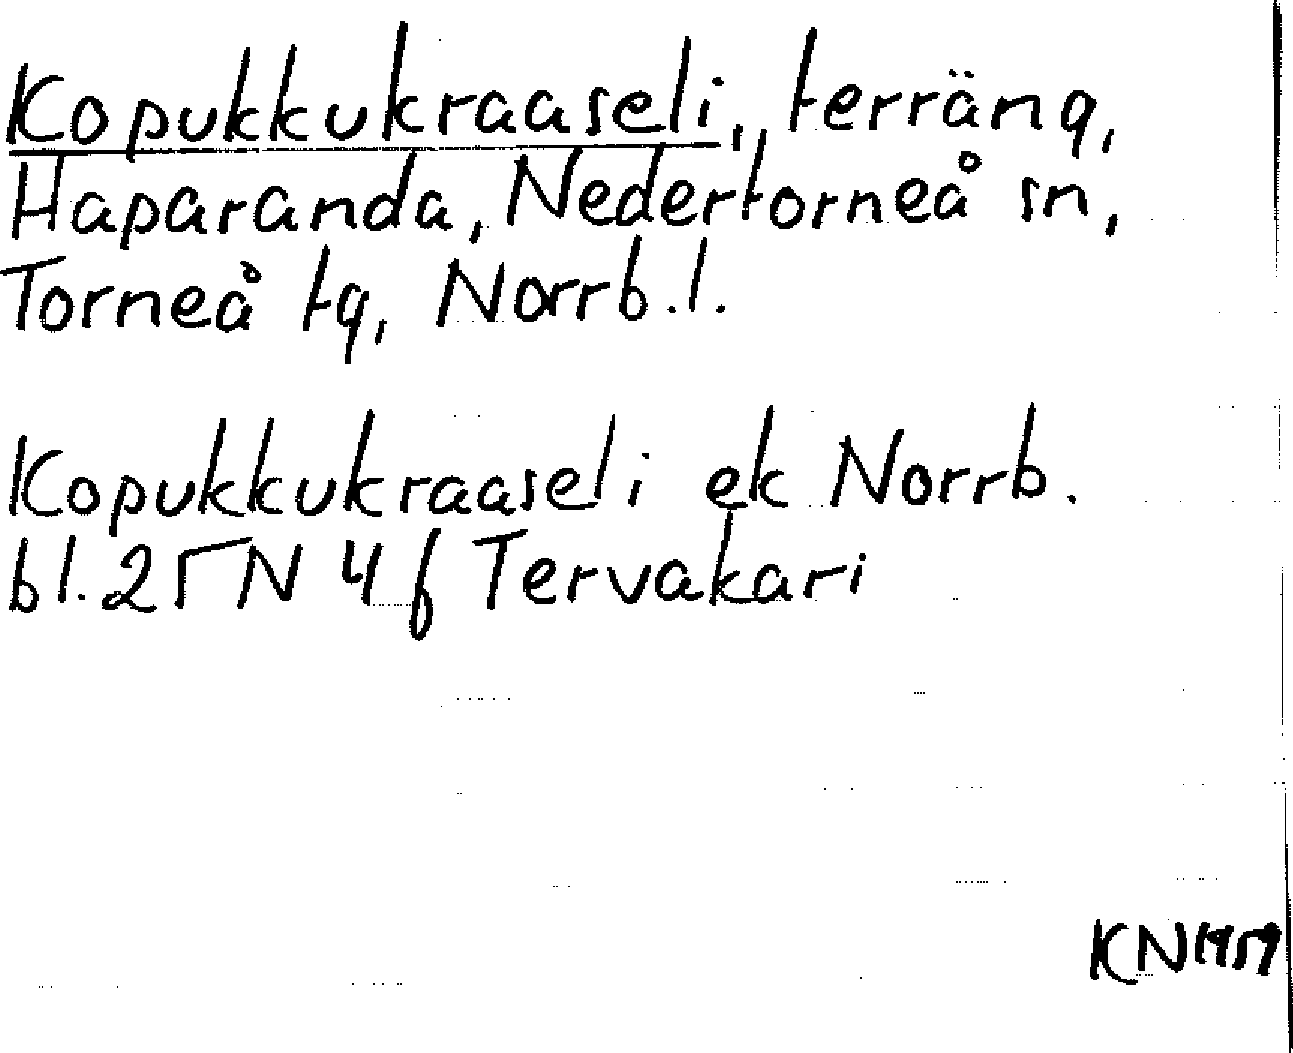 Kopukkukraaseli, terräng,
Haparanda, Nedertorneå sn,
Torneå tg, Norrb.l.
Kopukkukraaseli ek Norrb.
bl. 25 N 4 f Tervakari
KN 1959